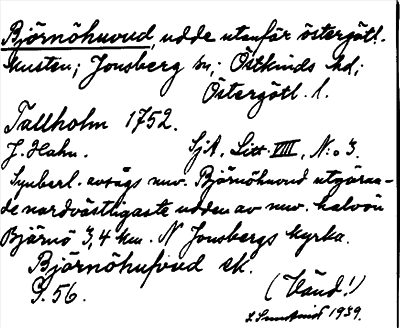 Björnöhuvud, udde utanför östergötl.
kusten; Jonsberg sn; Östkinds hd;
Östergötl. l.
Tallholm 1752.
J. Hahn. SjA, Litt. VIII, N:o 3.
Synberl. avsågs nuv. Björnöhuvud utgöran-
de nordvästligaste udden av nuv. halvön
Björnö 3,4 km. N Jonsbergs kyrka.
Björnöhufvud ek.
G. 56. (Vänd!)
1939.